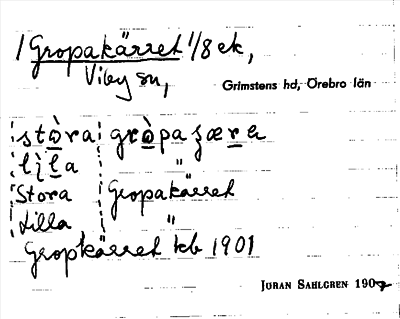 / Gropakärret 1/8 ek,
Viby sn,
Grimstens hd, Örebro län
stòra gròpaʒæra
lịla "
Stora Gropakärret
Lilla "
Gropkärret kb 1901
JÖRAN SAHLGREN 190